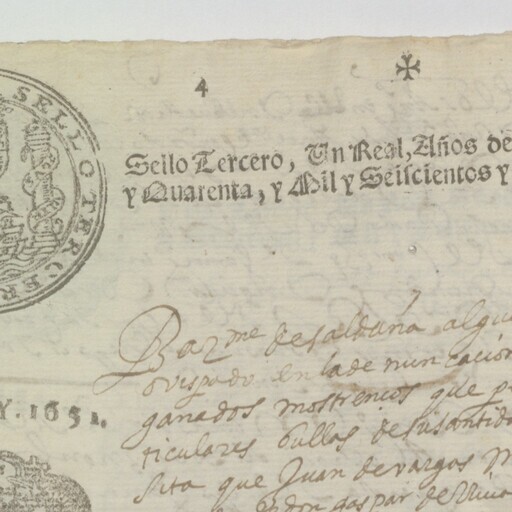 4
SELLO TERCER
Sello Tercero, Vn Real, Años de
y Quarenta, y Mil y Seiscientos y
Y. 1651.
de saldaña algu
ovispado en la de nunciación
ganados mostrencos que p
ticulares bullas de su santida
sita que Juan de vargas
don gaspar de